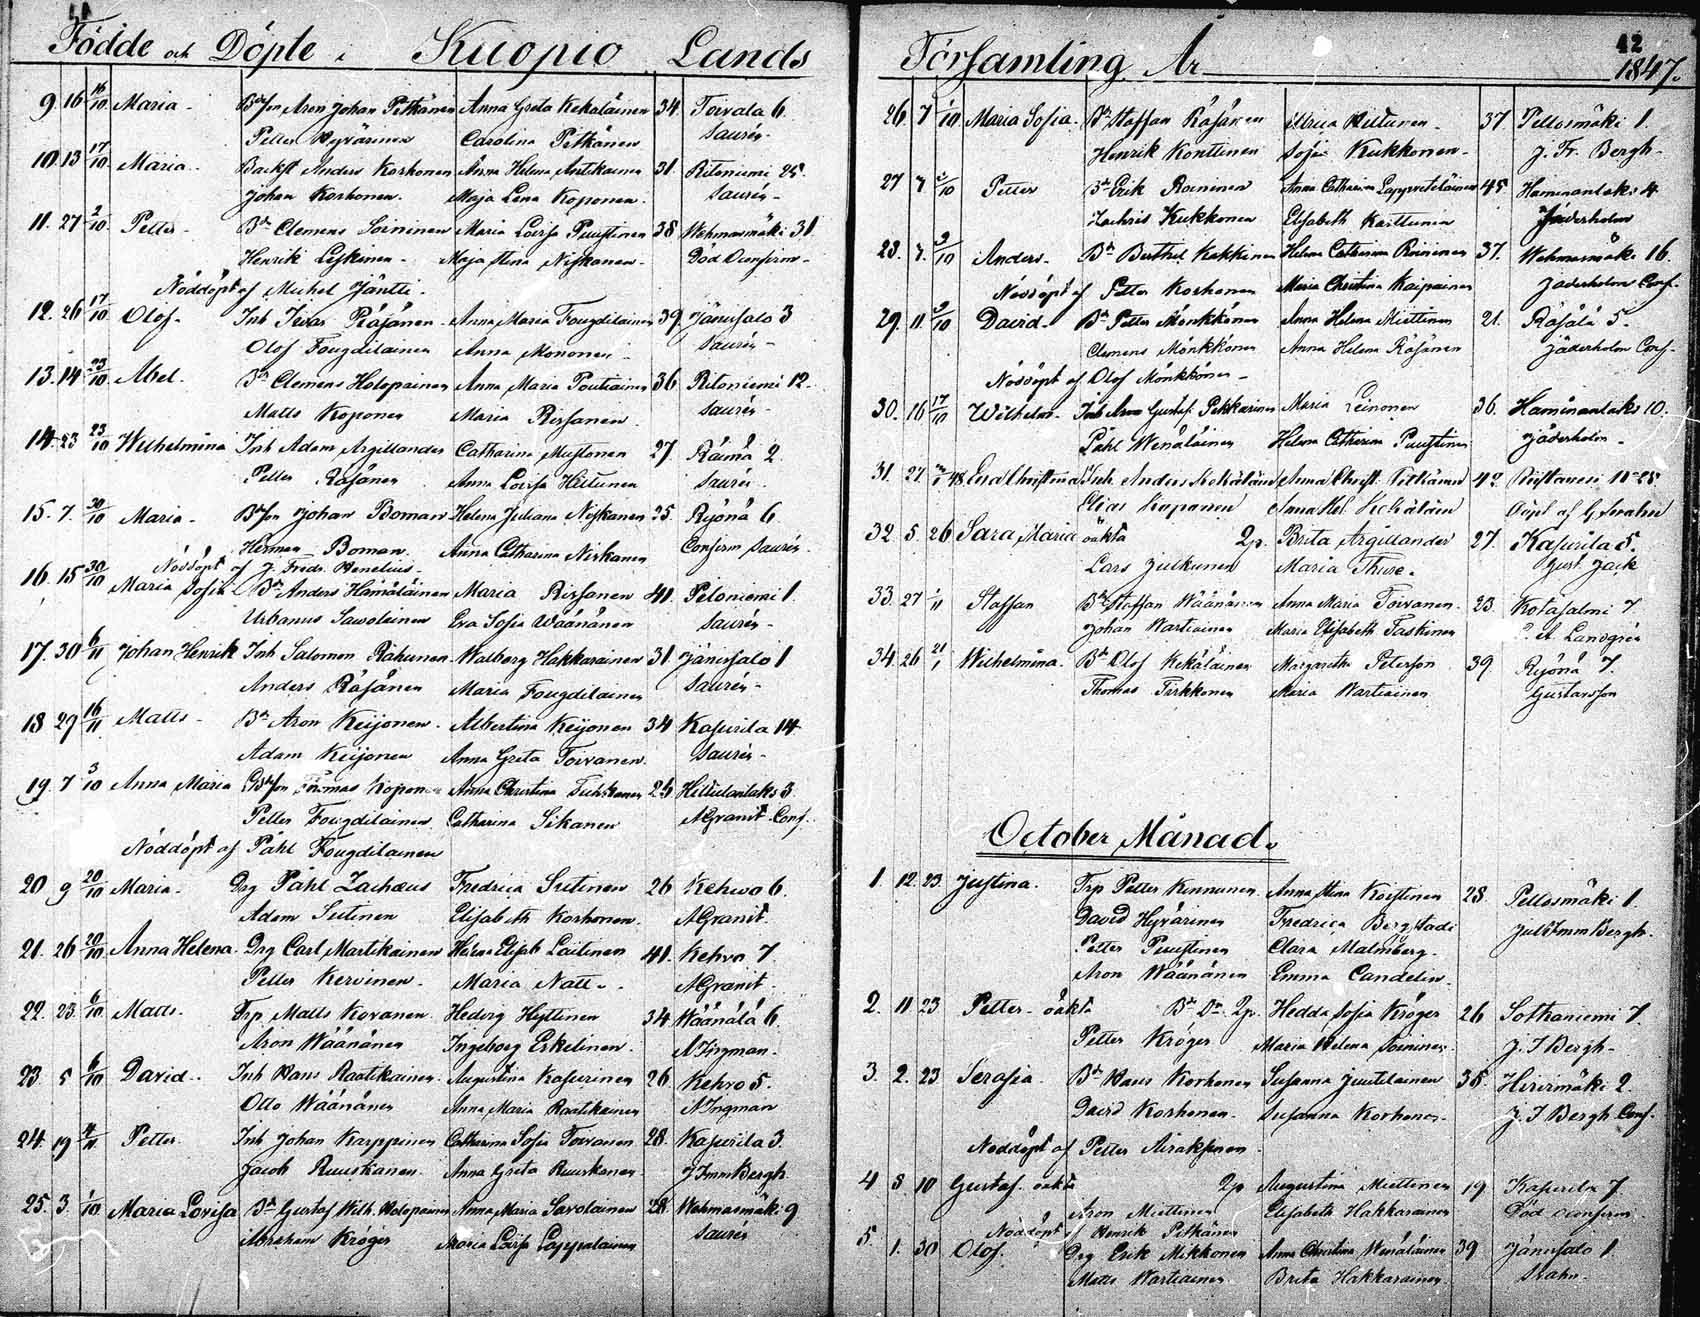 Födde och Döpte i Kuopio Lands
9 16 16/10 Maria Aron Johan Pitkänen Anna Greta Kekäläinen 34 Toivala 6.
Petter Hyvärinen Carolina Pitkänen Saurén
10. 13 17/10 Maria Backst Anders Korhonen Anna Helena Antikainen 31. Ritoniemi 25
Johan Korhonen. Maja Lena Koponen. Saurén
11. 27 2/10 Petter Bd Clemens Soininen Maria Lovisa Puustinen 38 Wehmasmäki 31
Henrik Leskinen Maja Stina Niskanen Död Oconfirm
Nöddöpt af Michel Jäntti.
12. 26 17/10 Olof Inh Ivar Räsänen Anna Maria Fougdilainen 39. Jänissalo 3
Olof Fougdilainen Anna Mononen Saurén
13. 14 23/10 Abel. Bd Clemens Holopainen Anna Maria Poutiainen 36 Ritoniemi 12.
Matts Koponen Maria Rissanen Saurén
14 23 23/10 Wilhelmina Inh Adam Argillander Catharina Mustonen 27. Räimä 2
Petter Räsänen Anna Lovisa Hiltunen Saurén
15. 7. 30/10 Maria Johan Boman Helena Juliana Niskanen 25. Ryönä 6
Herman Boman. Anna Catharina Niskanen Confirm Saurén
Nöddöpt af J. Fredr. Wenelius
16. 15 30/10 Maria Sofia Bd Anders Hämäläinen Maria Rissanen 41. Peloniemi 1.
Urbanus Sawolainen Eva Sofia Wäänänen Saurén
17. 30 6/11 Johan Henrik Inh Salomon Rahunen Walborg Hakkarainen 31. Jänissalo 1
Anders Räsänen Maria Fougdilainen Saurén
18 29 16/11 Matts Bd Aron Keijonen Albertina Keijonen 34 Kasurila 14
Adam Keijonen Anna Greta Toivanen. Saurén
19. 7 3/10 Anna Maria Thomas Koponen Anna Christina 24 3.
Petter Fougdilainen Catharina Sikanen A Granit Conf.
Nöddöpt af Påhl Fougdilainen
20 9 20/10 Maria. Drg Påhl Zachæus Fredrica Sutinen 26 Kehvo 6.
Adam Sutinen Elisabeth Korhonen. A Granit.
21. 26 20/10 Anna Helena Drg Carl Martikainen Helena Elisab Laitinen 41. Kehvo 7
Petter Kervinen Maria Natt A Granit.
22. 23. 6/10 Matts. Trp Matts Kovanen. Hedvig Hyttinen 34 Wäänälä 6.
Aron Wäänänen Ingeborg Eskelinen. A Ingman
23. 5 6/10 David Inh Hans Raatikainen Augustina Kasurinen 26. Kehvo 5.
Otto Wäänänen Anna Maria Raatikainen A Ingman
24. 19 Petter. Inh Johan Karppinen Catharina Sofia Toivanen 28. Kasurila 3.
Jacob Ruuskanen. Anna Greta Ruuskanen J Imm Bergh
25. 3. 1/10 Maria Lovisa Bd Gustaf Wilh. Holopainen Anna Maria Savolainen 28. Wehmasmäki 9
Abraham Kröger Maria Lovisa Lappalainen Saurén
42
Församling År 1847.
26 7 1/10 Maria Sofia. Bd Staffan Räsänen Ulrica Hiltunen 37. Pellosmäki 1.
Henrik Konttinen Sofia Kukkonen J. Fr. Bergh
27 7 2/10 Petter Bd Erik Roininen Anna Catharina Lappveteläinen 45. Haminanlaks 4
Zachris Kukkonen Elisabeth Karttunen Jäderholm
28. 7. 3/10 Anders. Bd Berthel Kukkonen Helena Catharina Roininen 37. Wehmasmäki 16.
Nöddöpt af Petter Korhonen Maria Christina Kaipainen Jäderholm Conf.
29 11. 3/10 David Bd Petter Mönkkönen Anna Helena Miettinen 21. Räsälä 5.
Clemens Mönkkönen Anna Helena Räsänen Jäderholm Conf.
Nöddöpt af Olof Mönkkönen
30. 16 17/10 Wilhelm Inh Aron Gustaf Pekkarinen Maria Leinonen 36. Haminanlaks 10.
Påhl Wenäläinen Helena Catharina Puustinen Jäderholm
31. 27. Eva Christina Inh. Anders Kekäläinen Anna Christ. Pitkänen 42.
Elias Koponen Anna Hel. Kekäläin Döpt af G Swahn
32. 5. 26 Sara Maria oäkta 2p. Brita Argillander 27. Kasurila 5.
Lars Julkunen Maria Thure. Gust. Jack
33. 27 1/11 Staffan Bd Staffan Wäänänen Anna Maria Toivanen. 23. Kotasalmi 7
Johan Wartiainen Maria Elisabeth Taskinen Landgrén
34. 26 21/1 Wilhelmina. Bd Olof Kekäläinen Margaretha Peterson 39 Ryönä 7.
Thomas Tirkkonen Maria Wartiainen Gustafsson
October Månad.
1. 12. 23. Justina. Trp Petter Kinnunen Anna Stina Koistinen 28. Pellosmäki 1.
David Hyvärinen Fredrica Bergstadi Jul Imm Bergh.
Petter Puustinen Clara Malmberg.
Aron Wäänänen Emma Candelin.
2. 11 23 Petter oäkta Bd Dr. 2p. Hedda Sofia Kröger 26 Sotkaniemi 7.
Petter Kröger Maria Helena Soininen J. I Bergh
3. 2. 23 Serafia. Bd Hans Korhonen Susanna Juutilainen 35. Hirvimäki 2
David Korhonen. Susanna Korhonen J. I Bergh Conf.
Nöddöpt af Petter Miraksinen
4 8 10 Gustaf. oäkta 2p Augustina Miettinen 19 Kasurila 7.
Aron Miettinen Elisabeth Hakkarainen Död oconfirm.
Nöddöpt af Henrik Pitkänen
5. 1. 30 Olof. Drg Erik Mikkonen Anna Christina Wenäläinen 39 Jänissalo 1.
Matts Wartiainen Brita Hakkarainen Svahn.